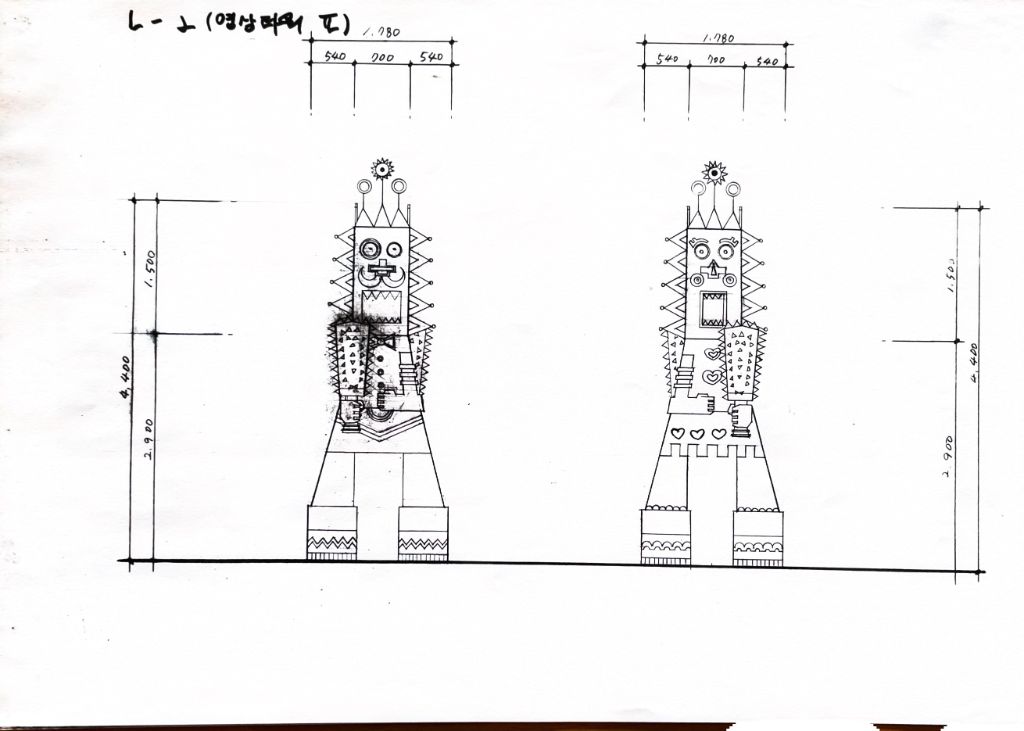 ㄴ - ㅗ (영상파의 II)
1.780
540 700 540
1.780
540 700 540
1.500
4,400
2.900
1.500
4,400
2.900